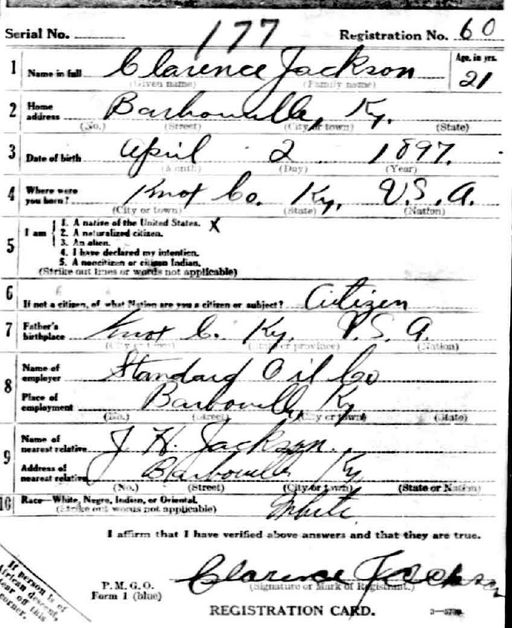 Serial No. 177 Registration No. 60
1 Name in full Clarence Jackson Age, in yrs. 21
(Given name) (Family name)
2 Home address Barbourville, Ky.
(No.) (Street) (City or town) (State)
3 Date of birth April 2 1897.
(Month) (Day) (Year)
4 Where were you born? Knox Co. Ky, U.S.A.
(City or town) (State) (Nation)
5 I am
1. A native of the United States. X
2. A naturalized citizen.
3. An alien.
4. I have declared my intention.
5. A noncitizen or citizen Indian.
(Strike out lines or words not applicable)
6 If not a citizen, of what Nation are you a citizen or subject? Citizen
7 Father's birthplace Knox C. Ky U.S.A.
(City or province) (Nation)
8 Name of employer Standard Oil Co
Place of employment Barbourville, Ky
(No.) (Street) (City or town) (State)
9 Name of nearest relative J. H. Jackson.
Address of nearest relative Barbourville Ky
(No.) (Street) (City or town) (State or Nation)
10 Race—White, Negro, Indian, or Oriental. White
(Strike out words not applicable)
I affirm that I have verified above answers and that they are true.
If person is of African descent, tear off this corner.
P. M. G. O.
Form 1 (blue)
Clarence Jackson
(Signature or Mark of Registrant.)
REGISTRATION CARD.